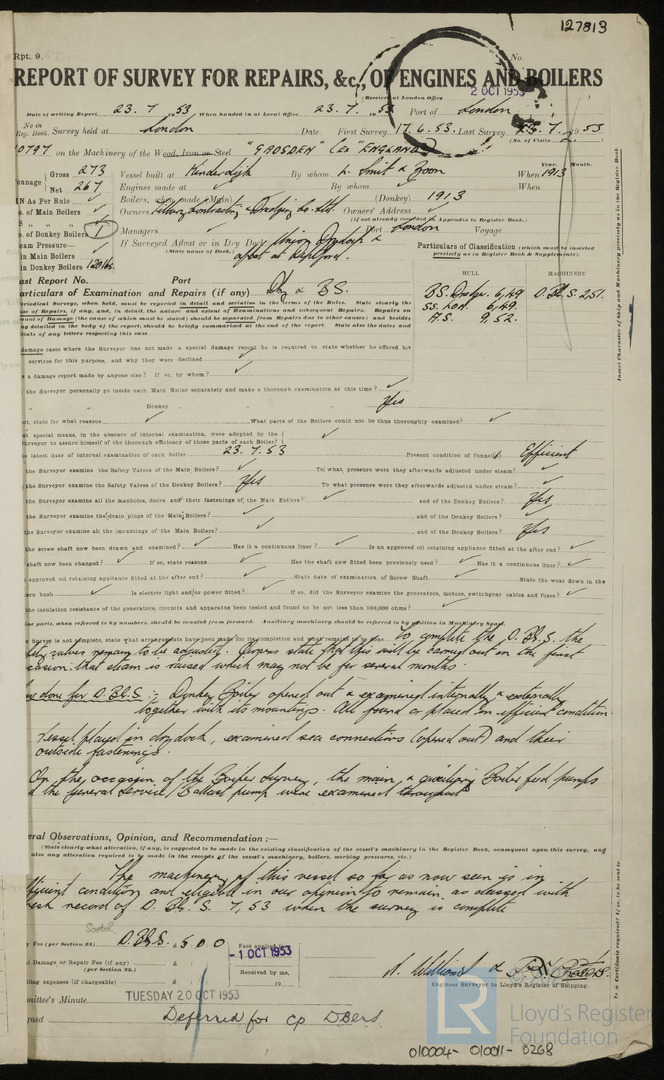 127813
Rpt. 9.
No.
REPORT OF SURVEY FOR REPAIRS, &c., OF ENGINES AND BOILERS
(Received at London Office 2 OCT 1953
Date of writing Report 23.7.1953 When handed in at Local Office 23.7.1953 Port of London
No. in Reg. Book. Survey held at London Date First Survey 17.6.53 Last Survey 23.7.1953
(No. of Visits
on the Machinery of the Wood, Iron or Steel "GADSDEN" (Ex "ENGLAND")
Year. Month.
Gross 273 Vessel built at Kinderdijk By whom L. Smit & Zoon When 1913
Tonnage
Net 267 Engines made at By whom When
NN As Per Rule Boilers, when made (Main) (Donkey) 1913
No. of Main Boilers Owners Tilbury Contracting & Dredging Co. Ltd. Owners' Address
(if not already recorded in Appendix to Register Book.)
No. of Donkey Boilers 1 Managers Port London Voyage
Steam Pressure— If Surveyed Afloat or in Dry Dock Union Drydock &
(State name of Dock.) afloat at Deptford.
in Main Boilers
in Donkey Boilers 120 lbs.
Particulars of Classification (which must be inserted
precisely as in Register Book & Supplements).
Last Report No. Port
HULL MACHINERY
Particulars of Examination and Repairs (if any) Dkg & BS.
BS. Dredger. 6,49 D.Bl.S. 2,51.
SS. Lon. 6,49.
A.S. 9,52.
Insert Character of Ship and Machinery precisely as in the Register Book
damage cases where the Surveyor has not made a special damage report he is required to state whether he offered his
services for this purpose, and why they were declined
a damage report made by anyone else? If so, by whom?
the Surveyor personally go inside each Main Boiler separately and make a thorough examination at this time?
" " Donkey " " Yes
state for what reasons What parts of the Boilers could not be thus thoroughly examined?
special means, in the absence of internal examination, were adopted by the
Surveyor to assure himself of the thorough efficiency of those parts of each Boiler?
latest date of internal examination of each boiler 23.7.53 Present condition of funnel Efficient
the Surveyor examine the Safety Valves of the Main Boilers? To what pressure were they afterwards adjusted under steam?
the Surveyor examine the Safety Valves of the Donkey Boilers? Yes To what pressure were they afterwards adjusted under steam?
the Surveyor examine all the manholes, doors and their fastenings of the Main Boilers? and of the Donkey Boilers? Yes
the Surveyor examine the drain plugs of the Main Boilers? and of the Donkey Boilers?
the Surveyor examine all the mountings of the Main Boilers? and of the Donkey Boilers? Yes
the screw shaft now been drawn and examined? Has it a continuous liner? Is an approved oil retaining appliance fitted at the after end?
shaft now been changed? If so, state reasons Has the shaft now fitted been previously used? Has it a continuous liner?
approved oil retaining appliance fitted at the after end? State date of examination of Screw Shaft State the wear down in the
bush Is electric light and/or power fitted? If so, did the Surveyor examine the generators, motors, switchgear cables and fuses?
the insulation resistance of the generators, circuits and apparatus been tested and found to be not less than 100,000 ohms?
parts, when referred to by numbers, should be counted from forward. Auxiliary machinery should be referred to by position in Machinery Space.
Survey is not complete, state what arrangements have been made for its completion and what remains to be done To complete the D.Bl.S. the
valves remain to be adjusted. Owners state that this will be carried out on the first
occasion that steam is raised which may not be for several months.
Now done for D.Bl.S :- Donkey Boiler opened out & examined internally & externally
together with its mountings. All found or placed in efficient condition.
Vessel placed in drydock, examined sea connections (opened out) and their
outside fastenings.
On the occasion of the Boiler Survey, the main & auxiliary Boiler feed pumps
& the General Service/Ballast pump were examined throughout
General Observations, Opinion, and Recommendation:—
(State clearly what alteration, if any, is suggested to be made in the existing classification of the vessel's machinery in the Register Book, consequent upon this survey, and
also any alteration required to be made in the records of the vessel's machinery, boilers, working pressures, etc.)
The machinery of this vessel so far as now seen is in
efficient condition and eligible in our opinion to remain as classed with
fresh record of D.Bl.S. 7,53 when the survey is complete
Fee (per Section 23.) D.Bl.S. £ 5 0 0 Fees applied for
- 1 OCT 1953
Damage or Repair Fee (if any) £
(per Section 23.)
Received by me,
expenses (if chargeable) £ 19
N. Williams &
Engineer Surveyor to Lloyd's Register of Shipping.
Committee's Minute TUESDAY 20 OCT 1953
Deferred for cp DBlrs
Is a Certificate required? If so, to be sent to
LR Lloyd's Register
Foundation
010004- 010011- 0268